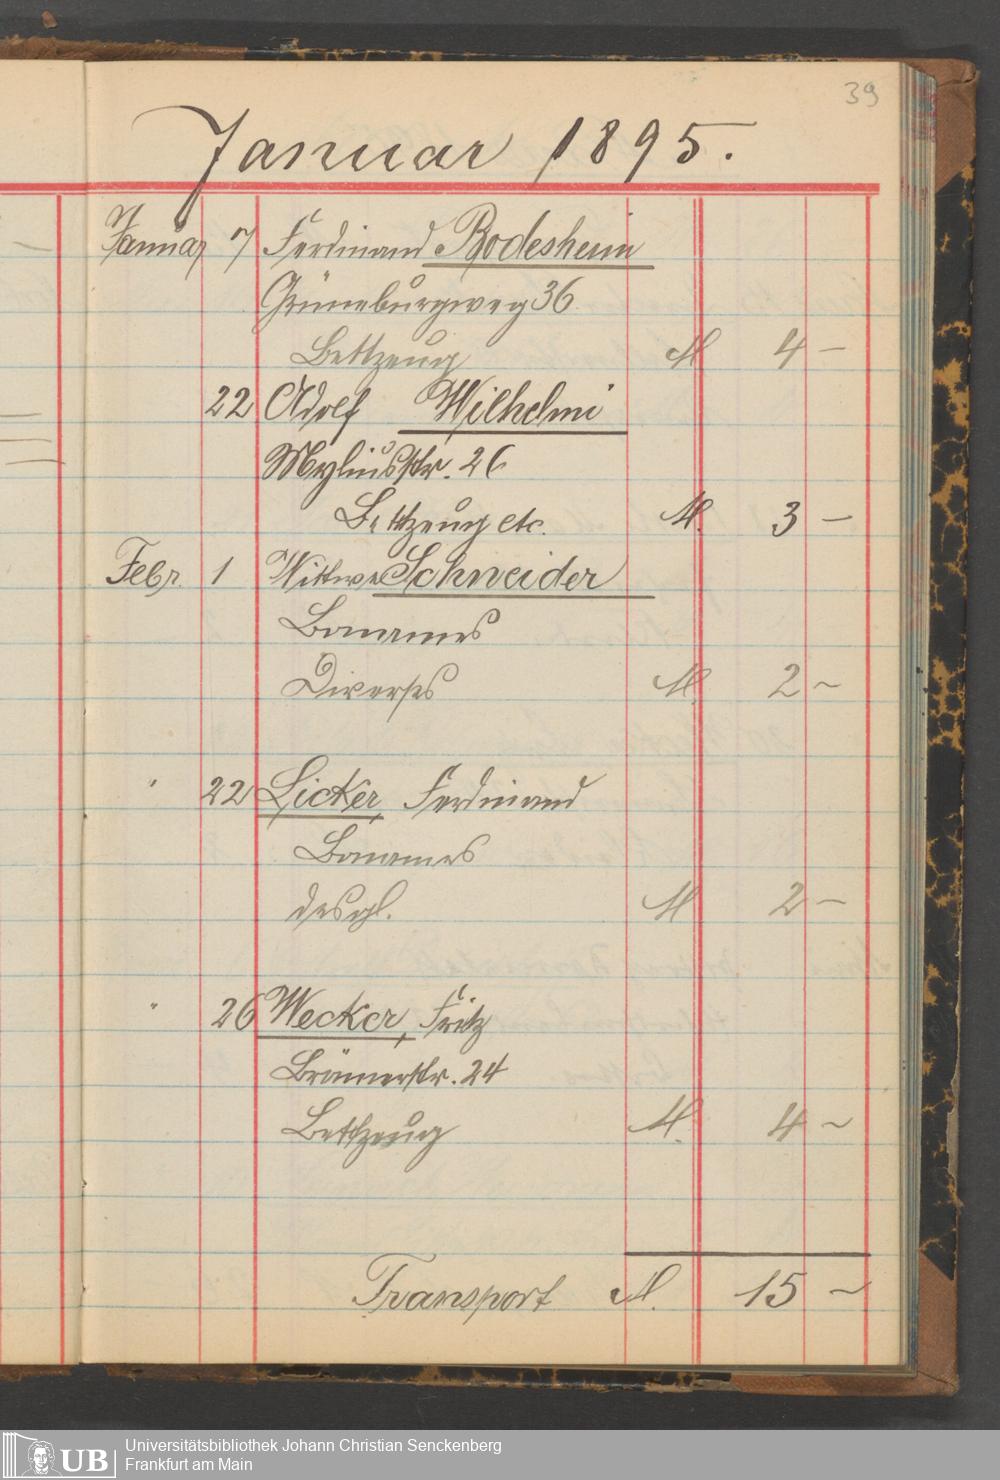 39
Januar 1895.
Januar 7 Ferdinand Rodesheim
Grüneburgweg 36
Bettzeug M 4 –
22 Adolf Wilhelmi
Myliusstr. 26
Bettzeug etc. M. 3 –
Febr. 1 Wittwe Schneider
Bonames
Diverses M. 2 ~
" 22 Licker, Ferdinand
Bonames
desgl. M 2 –
" 26 Wecker, Fritz
Brönnerstr. 24
Bettzeug M. 4 ~
Transport M. 15 ~
UB
Universitätsbibliothek Johann Christian Senckenberg
Frankfurt am Main